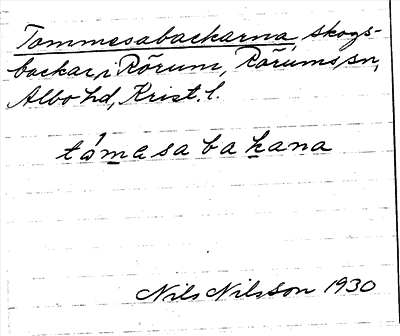 Tommesabackarna, skogs-
backar i Rörum, Rörums sn,
Albo hd, Krist. l.
tåmesabakana
Nils Nilsson 1930